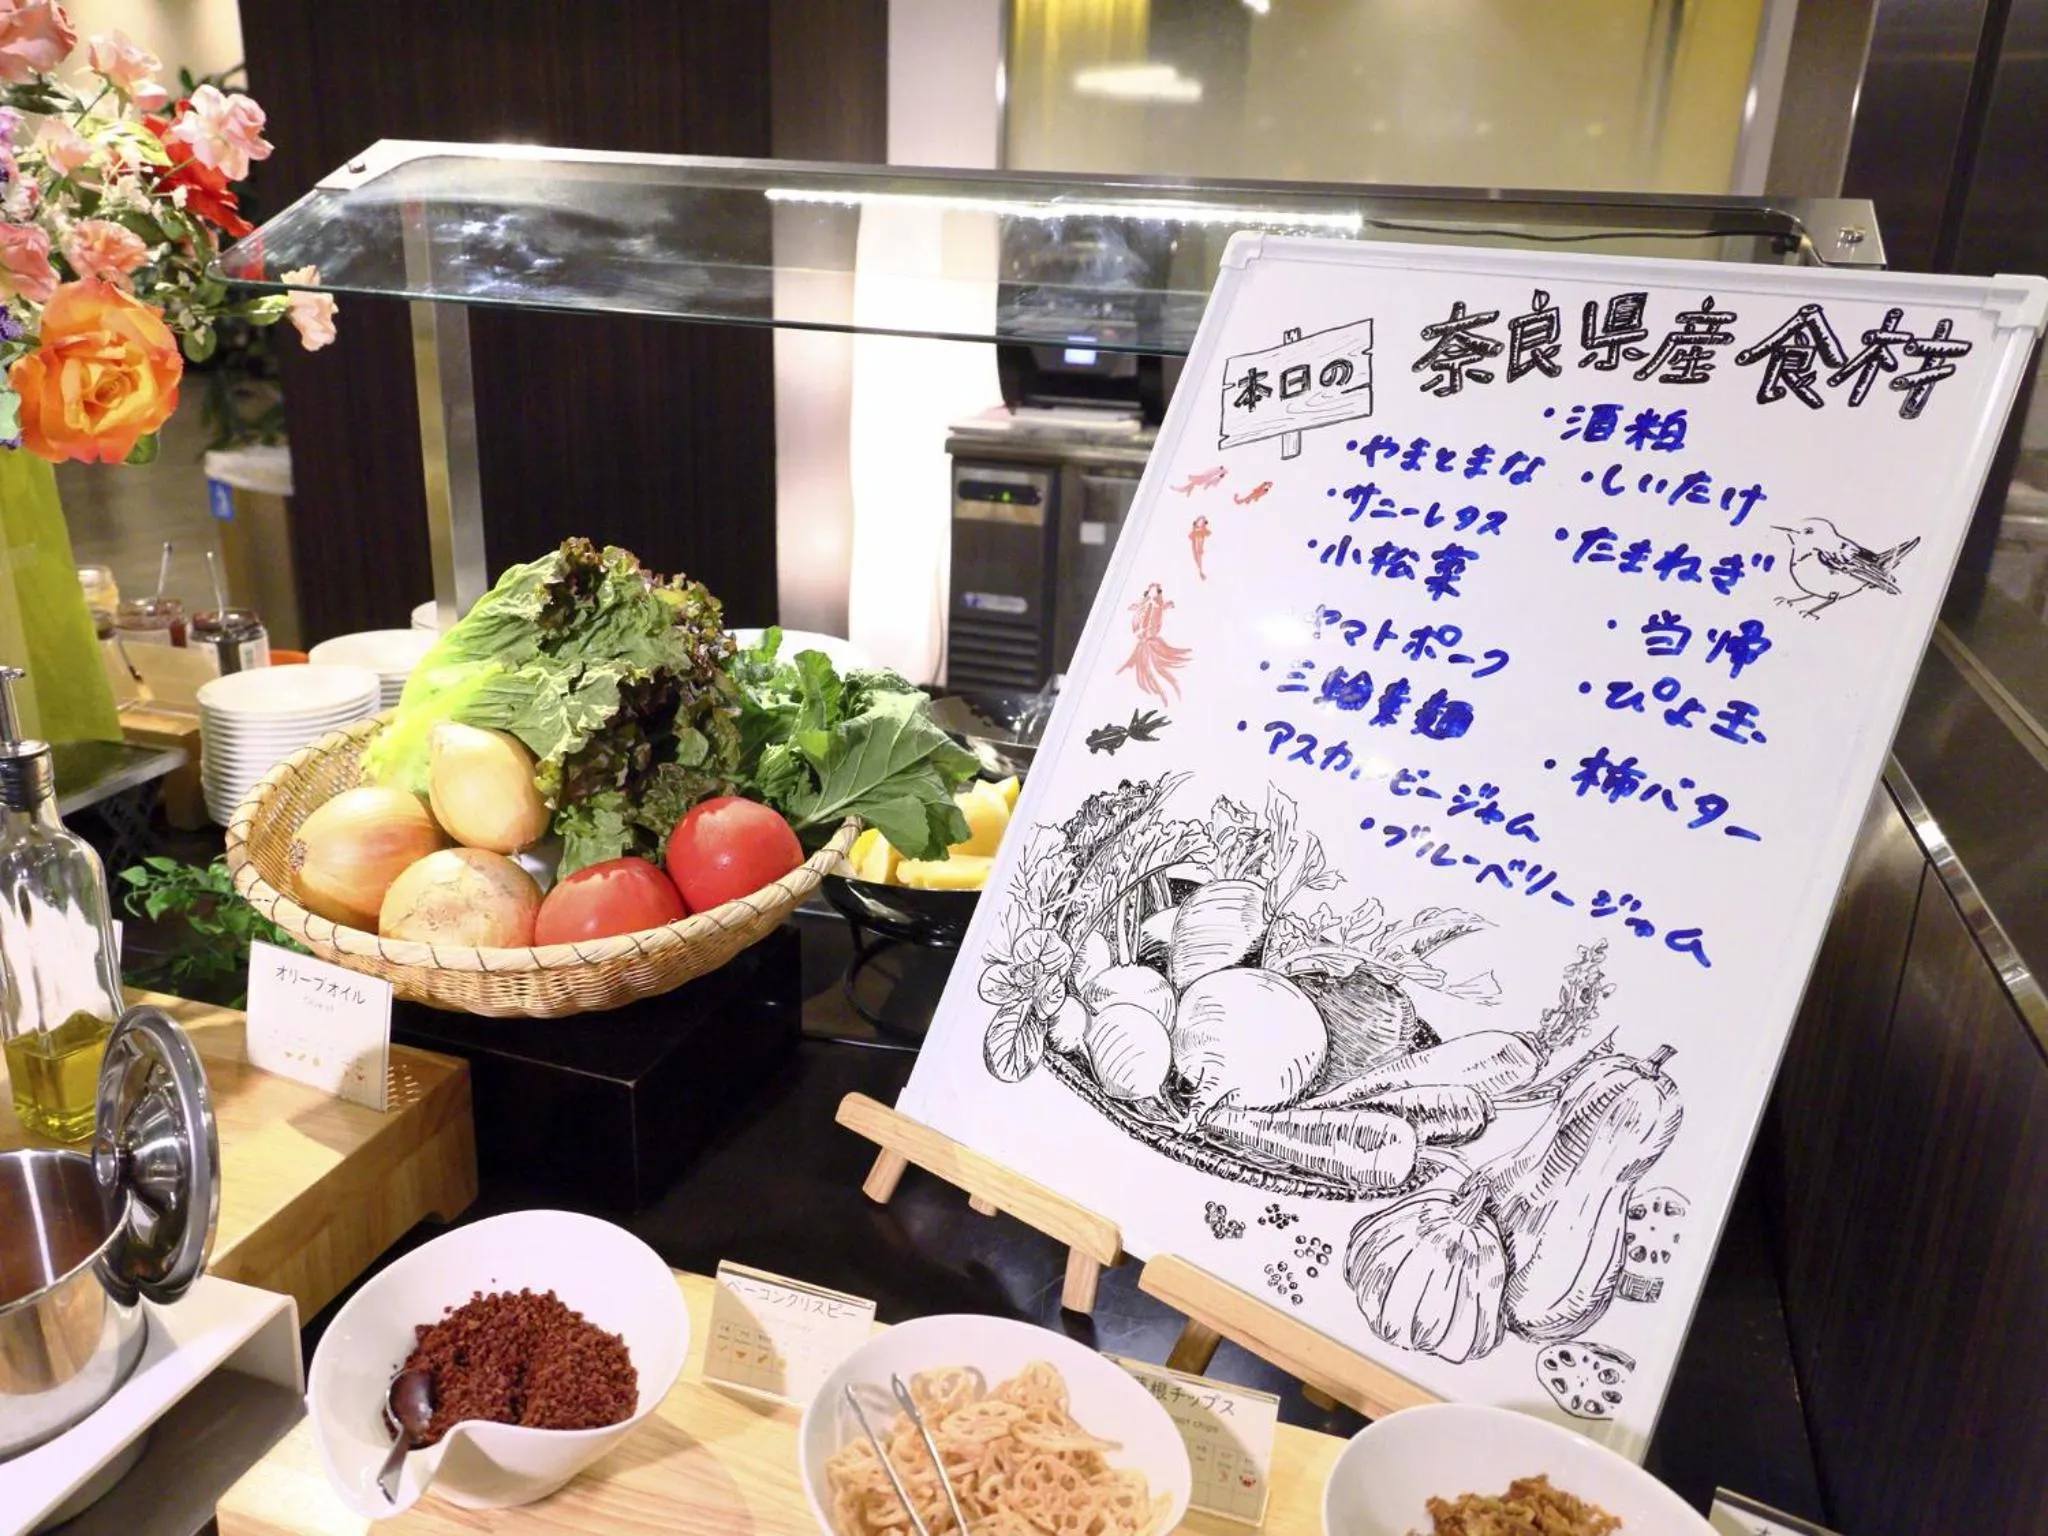 本日の
奈良県産食材
・酒粕
・やまとまな
・しいたけ
・サニーレタス
・たまねぎ
・小松菜
・当帰
ヤマトポーク
・ぴよ玉
・三輪素麺
・柿バター
・アスカルビージャム
・ブルーベリージャム
オリーブオイル
ベーコンクリスピー
根チップス